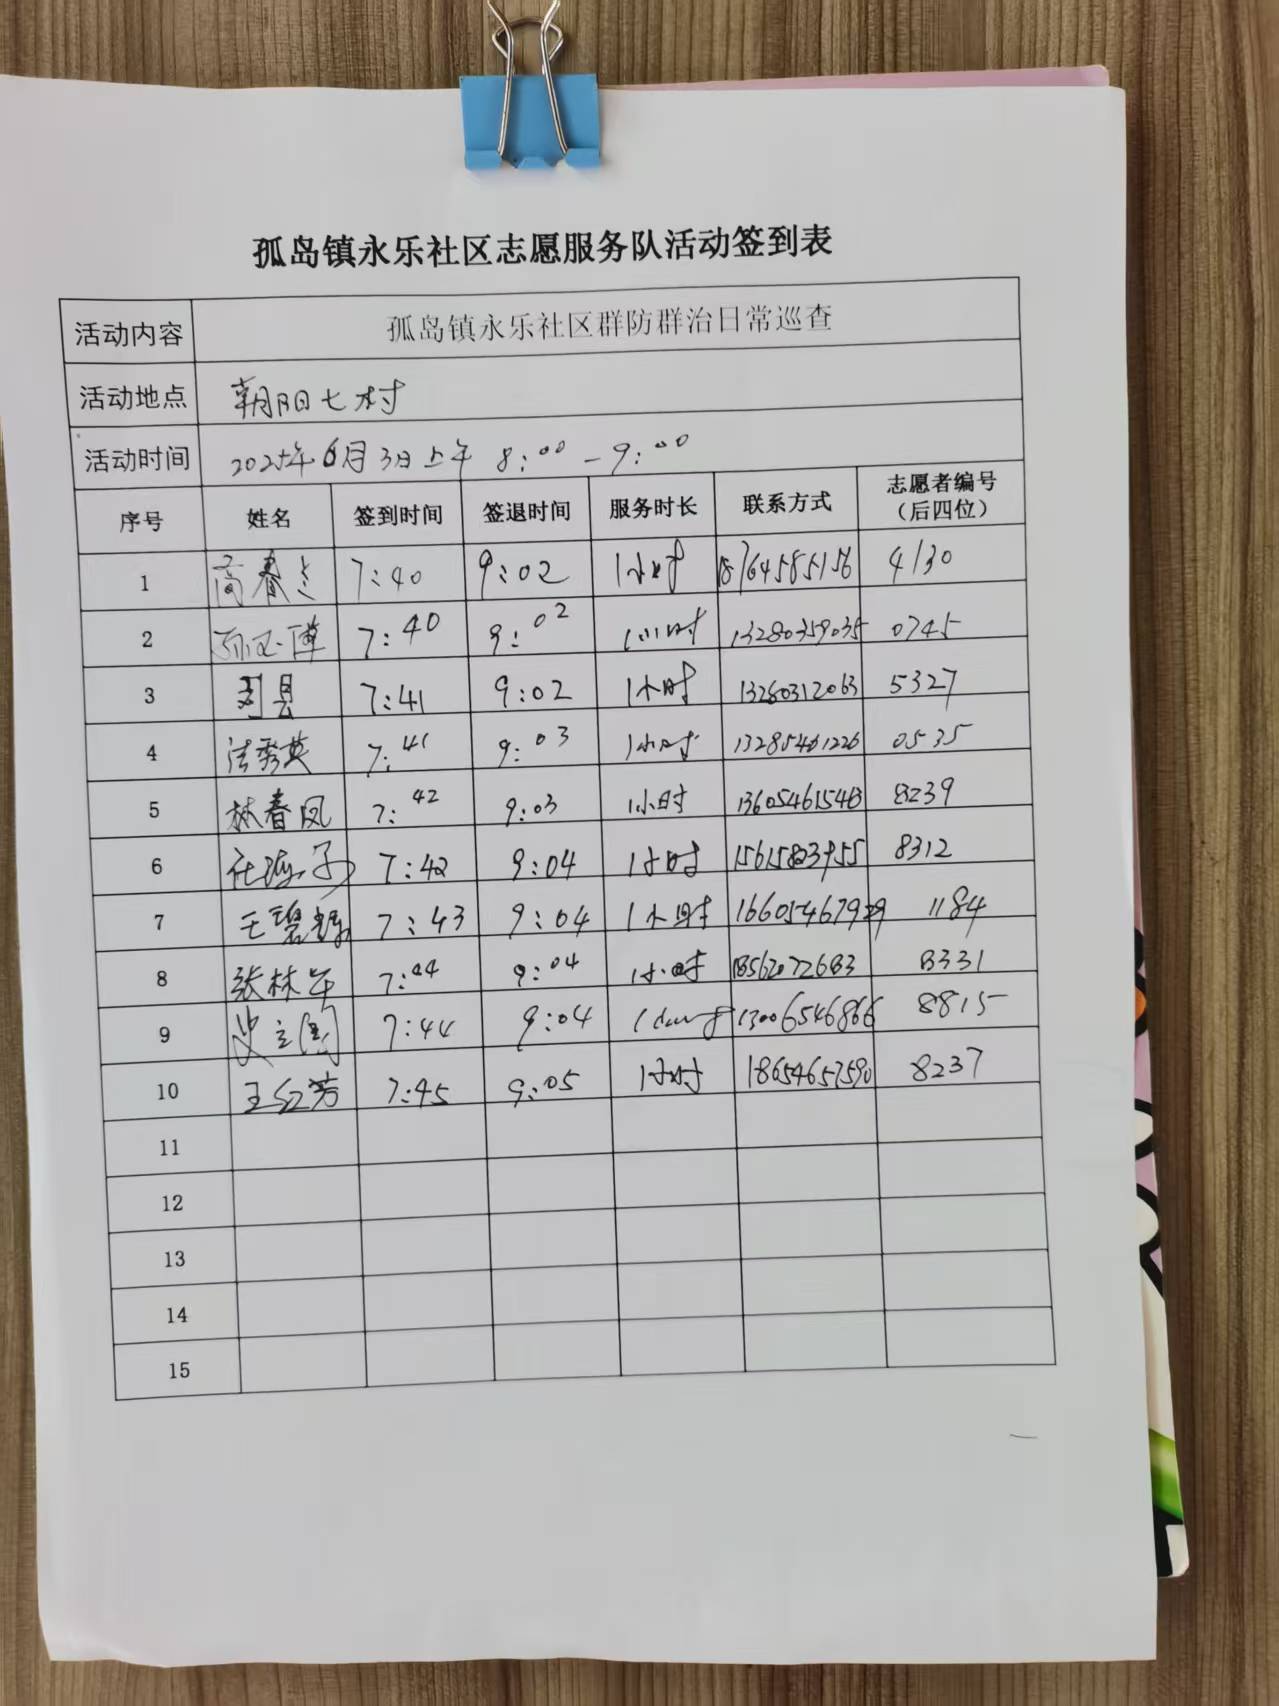 孤岛镇永乐社区志愿服务队活动签到表
活动内容 孤岛镇永乐社区群防群治日常巡查
活动地点 朝阳七村
活动时间 2025年6月3日上午 8:00-9:00
序号 姓名 签到时间 签退时间 服务时长 联系方式 志愿者编号(后四位)
1 7:40 9:02 1小时 18764585156 4130
2 7:40 9:02 1小时 13280359035 0745
3 7:41 9:02 1小时 13280312063 5327
4 法秀英 7:41 9:03 1小时 13285461226 0535
5 林春凤 7:42 9:03 1小时 13605461546 8239
6 7:42 9:04 1小时 8312
7 7:43 9:04 1小时 1184
8 7:44 9:04 1小时 8331
9 7:44 9:04 1小时 13006546866 8815
10 王红芳 7:45 9:05 1小时 18654657590 8237
11
12
13
14
15